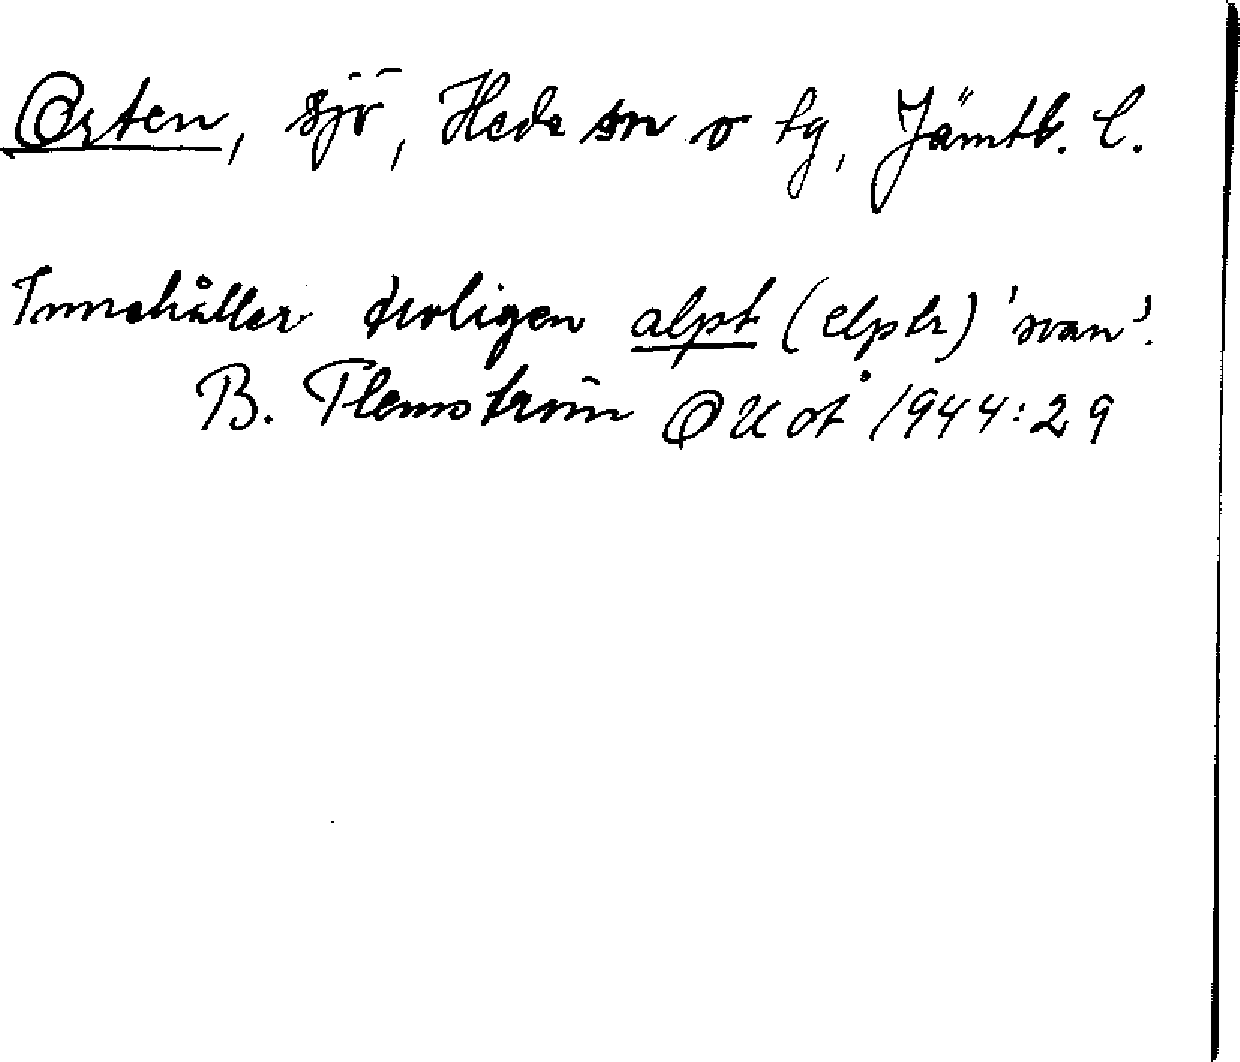 Örten, sjö, Hede sn o tg, Jämtl. l.
Innehåller troligen alpt (elptr) 'svan'.
B. Flemström OUoÅ 1944:29